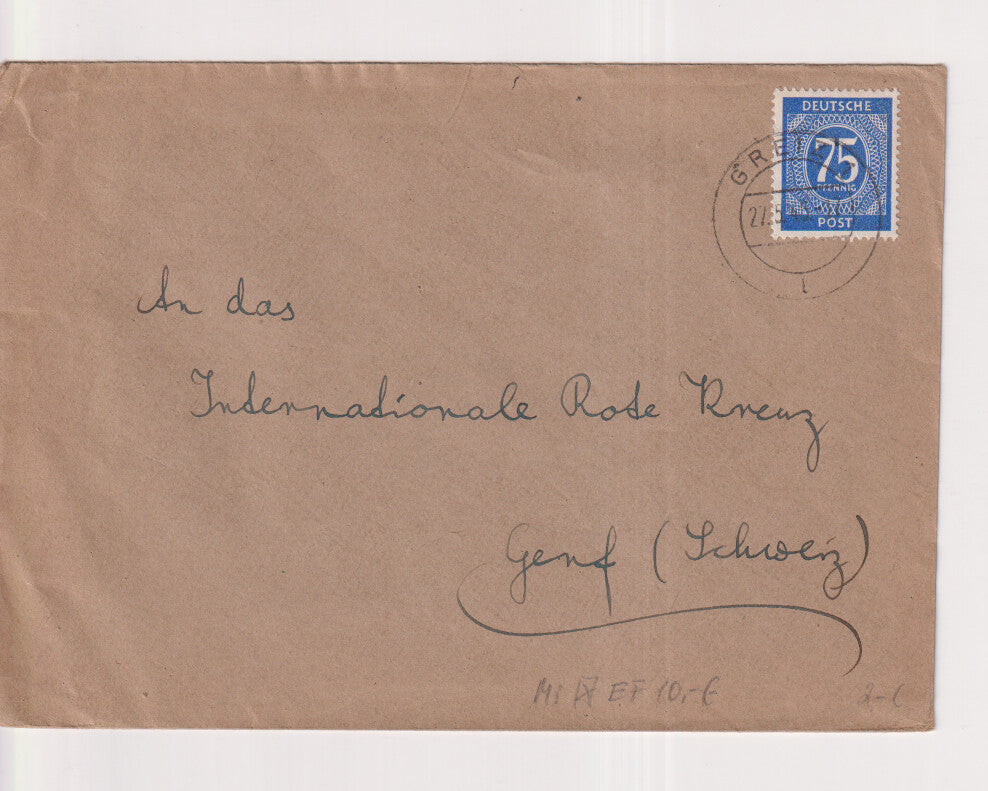 DEUTSCHE
75
PFENNIG
POST
An das
Internationale Rote Kreuz
Genf (Schweiz)
Mi EF 10,-€